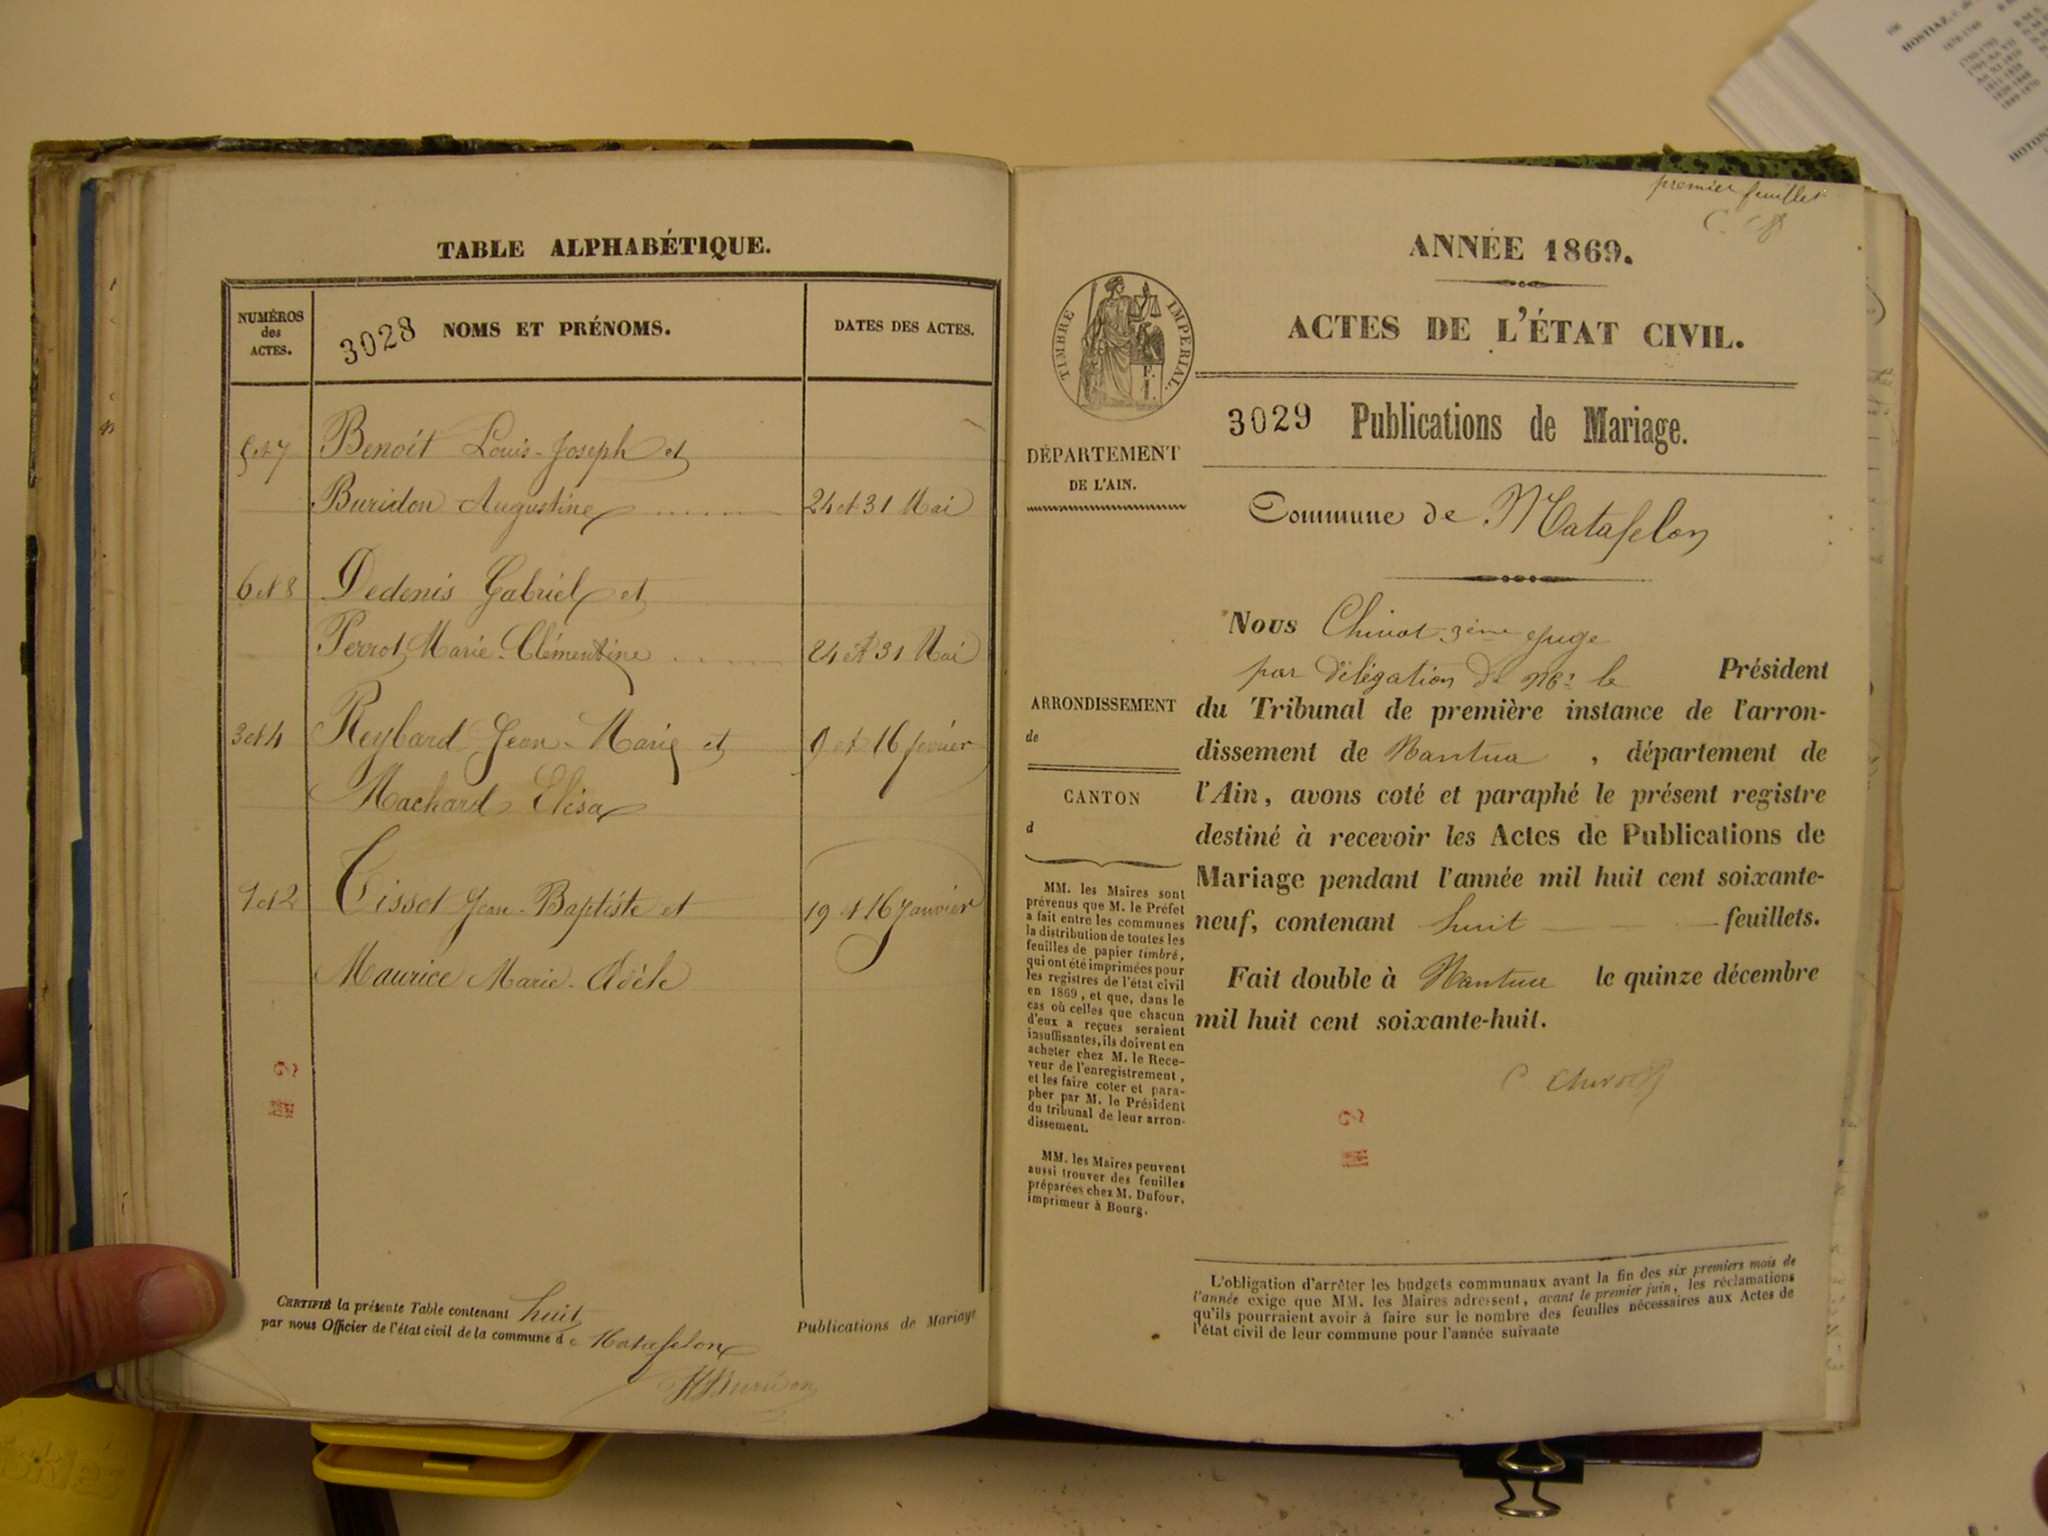 TABLE ALPHABÉTIQUE.
NUMÉROS
des
ACTES.
3028 NOMS ET PRÉNOMS.
DATES DES ACTES.
5 et 7 Benoit Louis-Joseph et
Buridon Augustine 24 et 31 Mai
6 et 8 Dedenis Gabriel et
Perrot Marie-Clémentine 24 et 31 Mai
3 et 4 Reybard Jean-Marie et 9 et 16 fevrier
Machard Elisa
1 et 2 Tissot Jean-Baptiste et 19 et 16 Janvier
Maurice Marie-Adèle
CERTIFIÉ la présente Table contenant huit
par nous Officier de l'état civil de la commune de Matafelon
Publications de Mariage
HBuridon
premier feuillet
ANNÉE 1869.
ACTES DE L'ÉTAT CIVIL.
TIMBRE IMPERIAL.
3029 Publications de Mariage.
DÉPARTEMENT
DE L'AIN.
Commune de Matafelon
Nous 3ème juge
par délégation de Mr le Président
du Tribunal de première instance de l'arron-
dissement de Nantua , département de
l'Ain, avons coté et paraphé le présent registre
destiné à recevoir les Actes de Publications de
Mariage pendant l'année mil huit cent soixante-
neuf, contenant huit feuillets.
Fait double à Nantua le quinze décembre
mil huit cent soixante-huit.
ARRONDISSEMENT
de
CANTON
d
MM. les Maires sont
prévenus que M. le Préfet
a fait entre les communes
la distribution de toutes les
feuilles de papier timbré,
qui ont été imprimées pour
les registres de l'état civil
en 1869, et que, dans le
cas où celles que chacun
d'eux a reçues seraient
insuffisantes, ils doivent en
acheter chez M. le Rece-
veur de l'enregistrement,
et les faire coter et para-
pher par M. le Président
du tribunal de leur arron-
dissement.
MM. les Maires peuvent
aussi trouver des feuilles
préparées chez M. Dufour,
imprimeur à Bourg.
L'obligation d'arrêter les budgets communaux avant la fin des six premiers mois de
l'année exige que MM. les Maires adressent, avant le premier juin, les réclamations
qu'ils pourraient avoir à faire sur le nombre des feuilles nécessaires aux Actes de
l'état civil de leur commune pour l'année suivante